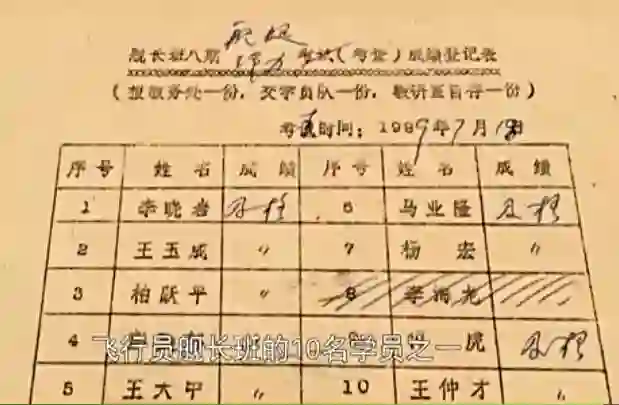 舰长班八期 考试(考查)成绩登记表
(报教务处一份，交学员队一份，教研室自存一份)
时间：1989年7月1 日
序号 姓名 成绩 序号 姓名 成绩
1 李晓岩 及格 6 马业隆 及格
2 王玉成 〃 7 杨宏 〃
3 柏跃平 〃 8
4 虎 及格
飞行员舰长班的10名学员之一
5 王大中 〃 10 王仲才 〃